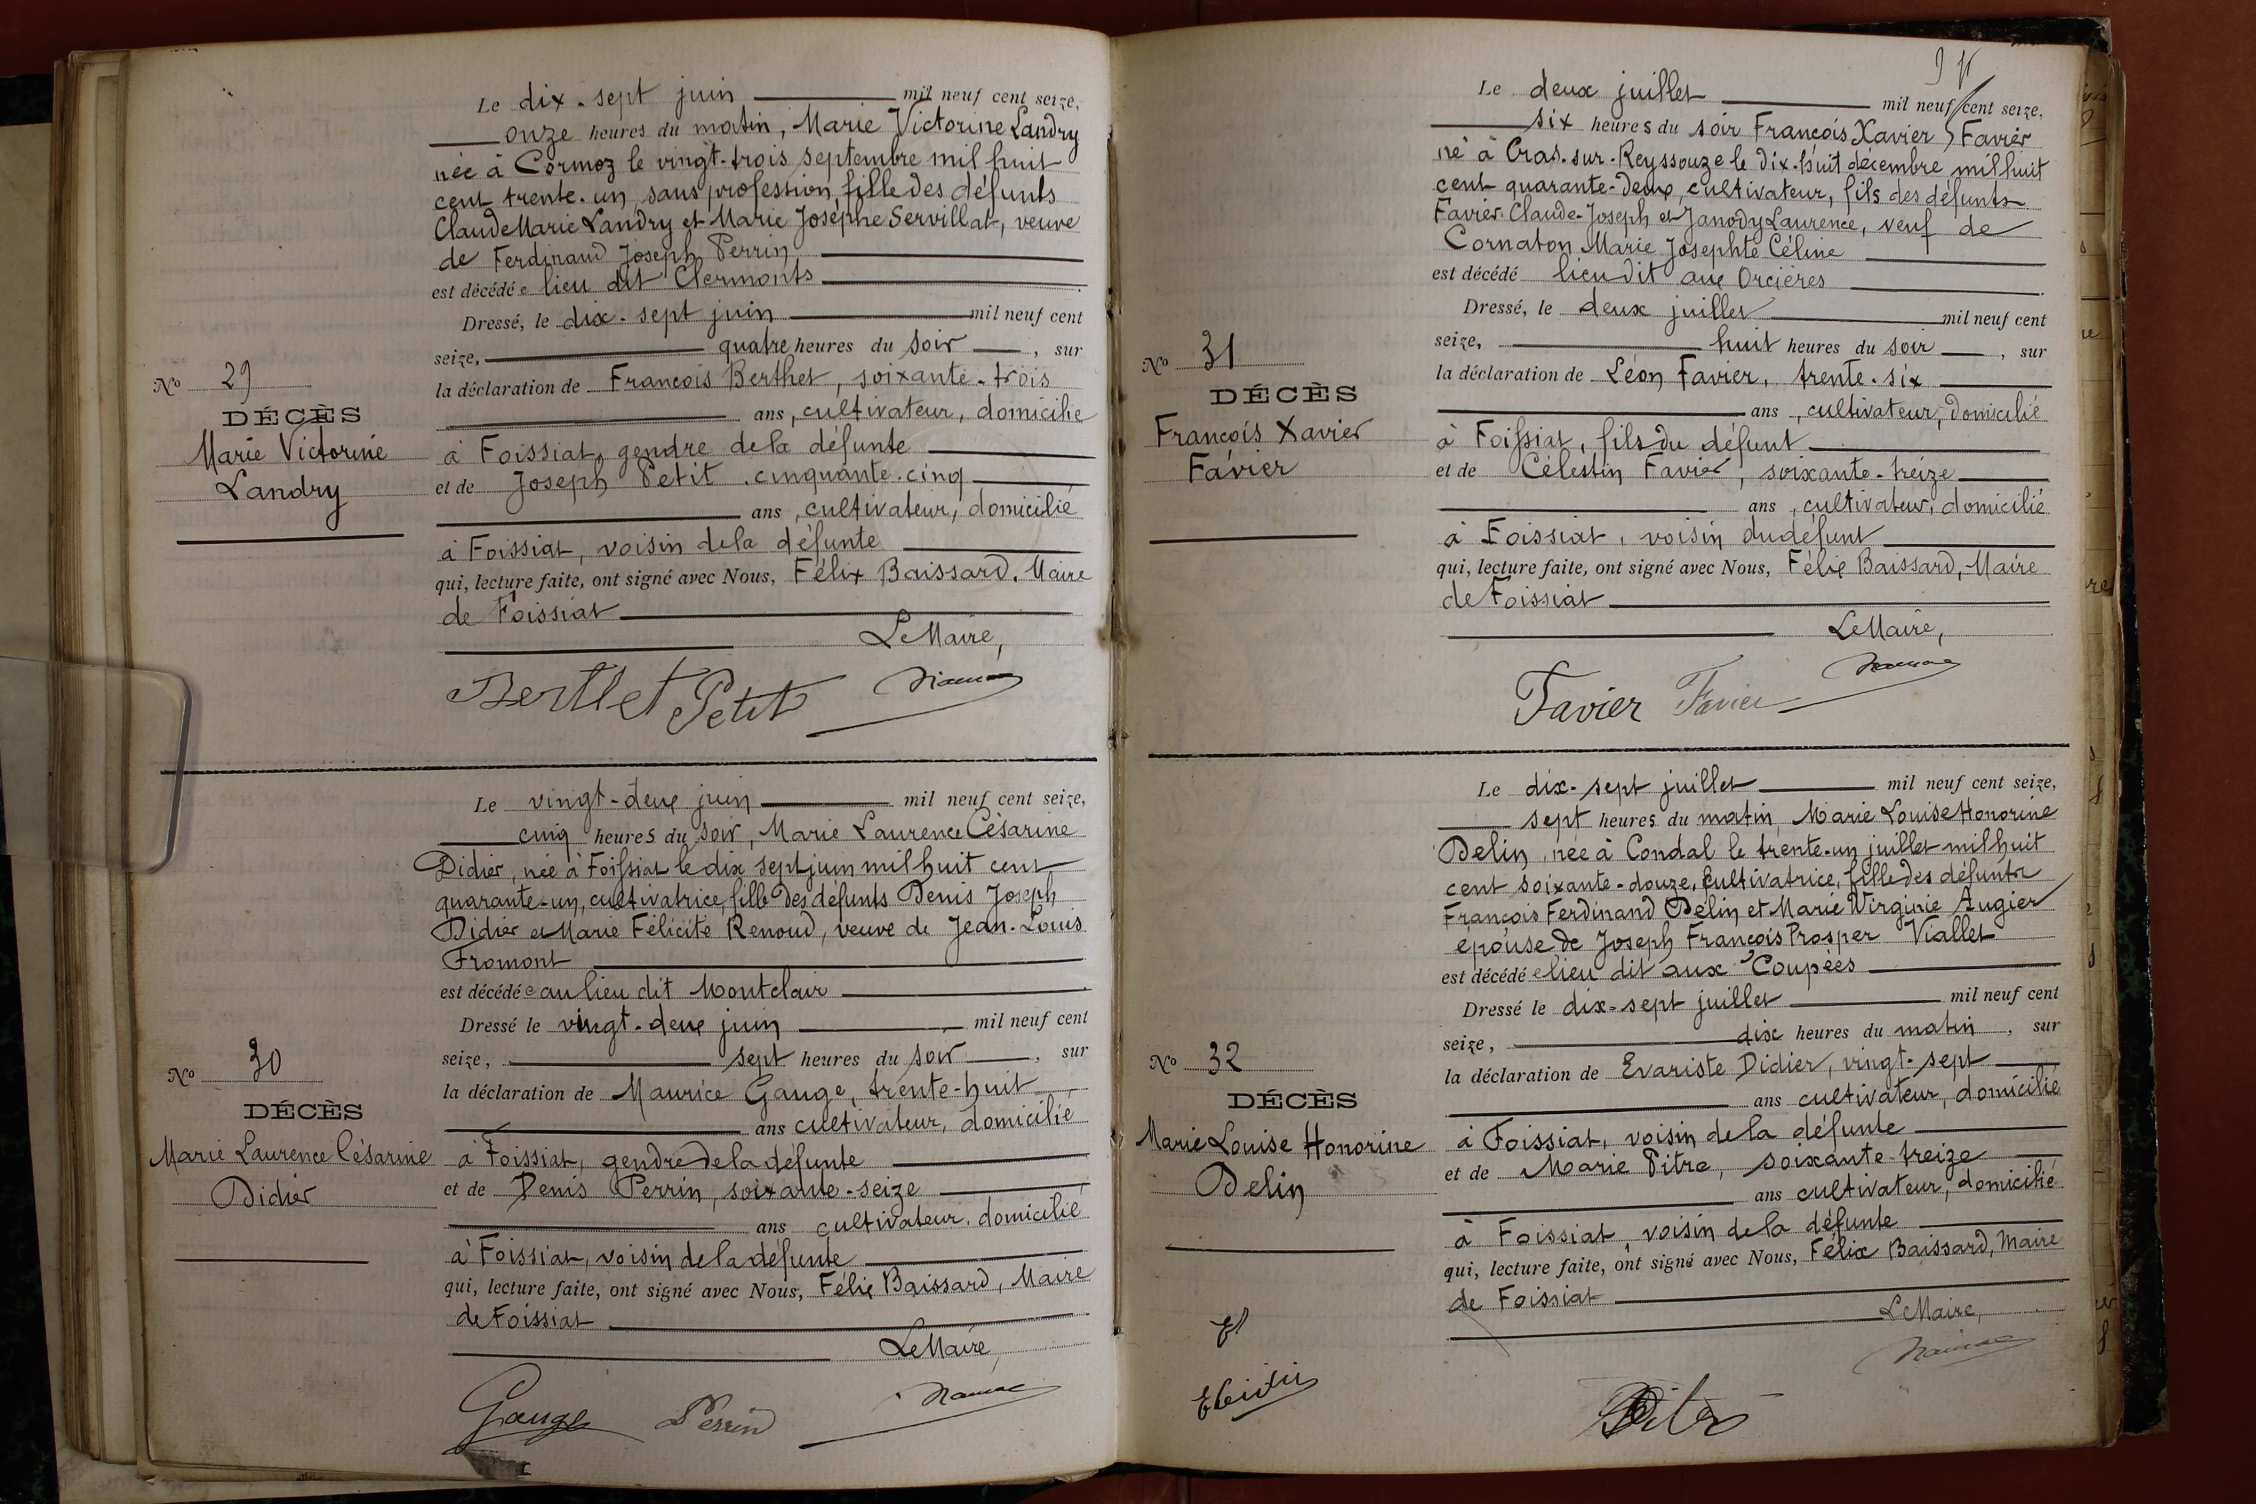 Le dix-sept juin mil neuf cent seize,
onze heures du matin, Marie Victorine Landry
née à Cormoz le vingt-trois septembre mil huit
cent trente-un, sans profession, fille des défunts
Claude Marie Landry et Marie Josephe Servillat, veuve
de Ferdinand Joseph Perrin
est décédée lieu dit Clermonts
Dressé, le dix-sept juin mil neuf cent
seize, quatre heures du soir, sur
la déclaration de François Berthet, soixante-trois
ans, cultivateur, domicilié
à Foissiat, gendre de la défunte
et de Joseph Petit, cinquante-cinq
ans, cultivateur, domicilié
à Foissiat, voisin de la défunte
qui, lecture faite, ont signé avec Nous, Félix Baissard, Maire
de Foissiat
Le Maire,
Berthet Petit
No 29
DÉCÈS
Marie Victorine
Landry
Le vingt-deux juin mil neuf cent seize,
cinq heures du soir, Marie Laurence Césarine
Didier, née à Foissiat le dix sept juin mil huit cent
quarante-un, cultivatrice, fille des défunts Denis Joseph
Didier et Marie Félicité Renoud, veuve de Jean-Louis
Fromont
est décédée au lieu dit Montclair
Dressé le vingt-deux juin mil neuf cent
seize, sept heures du soir, sur
la déclaration de Maurice Gauge, trente-huit
ans cultivateur, domicilié
à Foissiat, gendre de la défunte
et de Denis Perrin, soixante-seize
ans cultivateur, domicilié
à Foissiat, voisin de la défunte
qui, lecture faite, ont signé avec Nous, Félix Baissard, Maire
de Foissiat
Le Maire,
Gauge Perrin
No 30
DÉCÈS
Marie Laurence Césarine
Didier
Le deux juillet mil neuf cent seize,
six heures du soir François Xavier Favier
né à Cras-sur-Reyssouze le dix-huit décembre mil huit
cent quarante-deux, cultivateur, fils des défunts
Favier Claude-Joseph et Janody Laurence, veuf de
Cornaton Marie Josephte Céline
est décédé lieu dit aux Orcières
Dressé, le deux juillet mil neuf cent
seize, huit heures du soir, sur
la déclaration de Léon Favier, trente-six
ans, cultivateur, domicilié
à Foissiat, fils du défunt
et de Célestin Favier, soixante-treize
ans, cultivateur, domicilié
à Foissiat, voisin du défunt
qui, lecture faite, ont signé avec Nous, Félix Baissard, Maire
de Foissiat
Le Maire,
Favier Favier
No 31
DÉCÈS
François Xavier
Favier
Le dix-sept juillet mil neuf cent seize,
sept heures du matin, Marie Louise Honorine
Delin, née à Condal le trente-un juillet mil huit
cent soixante-douze, cultivatrice, fille des défunts
François Ferdinand Délin et Marie Virginie Augier
épouse de Joseph François Prosper Viallet
est décédée lieu dit aux Coupées
Dressé le dix-sept juillet mil neuf cent
seize, dix heures du matin, sur
la déclaration de Evariste Didier, vingt-sept
ans cultivateur, domicilié
à Foissiat, voisin de la défunte
et de Marie Pitre, soixante-treize
ans cultivateur, domicilié
à Foissiat, voisin de la défunte
qui, lecture faite, ont signé avec Nous, Félix Baissard, Maire
de Foissiat
Le Maire,
No 32
DÉCÈS
Marie Louise Honorine
Delin